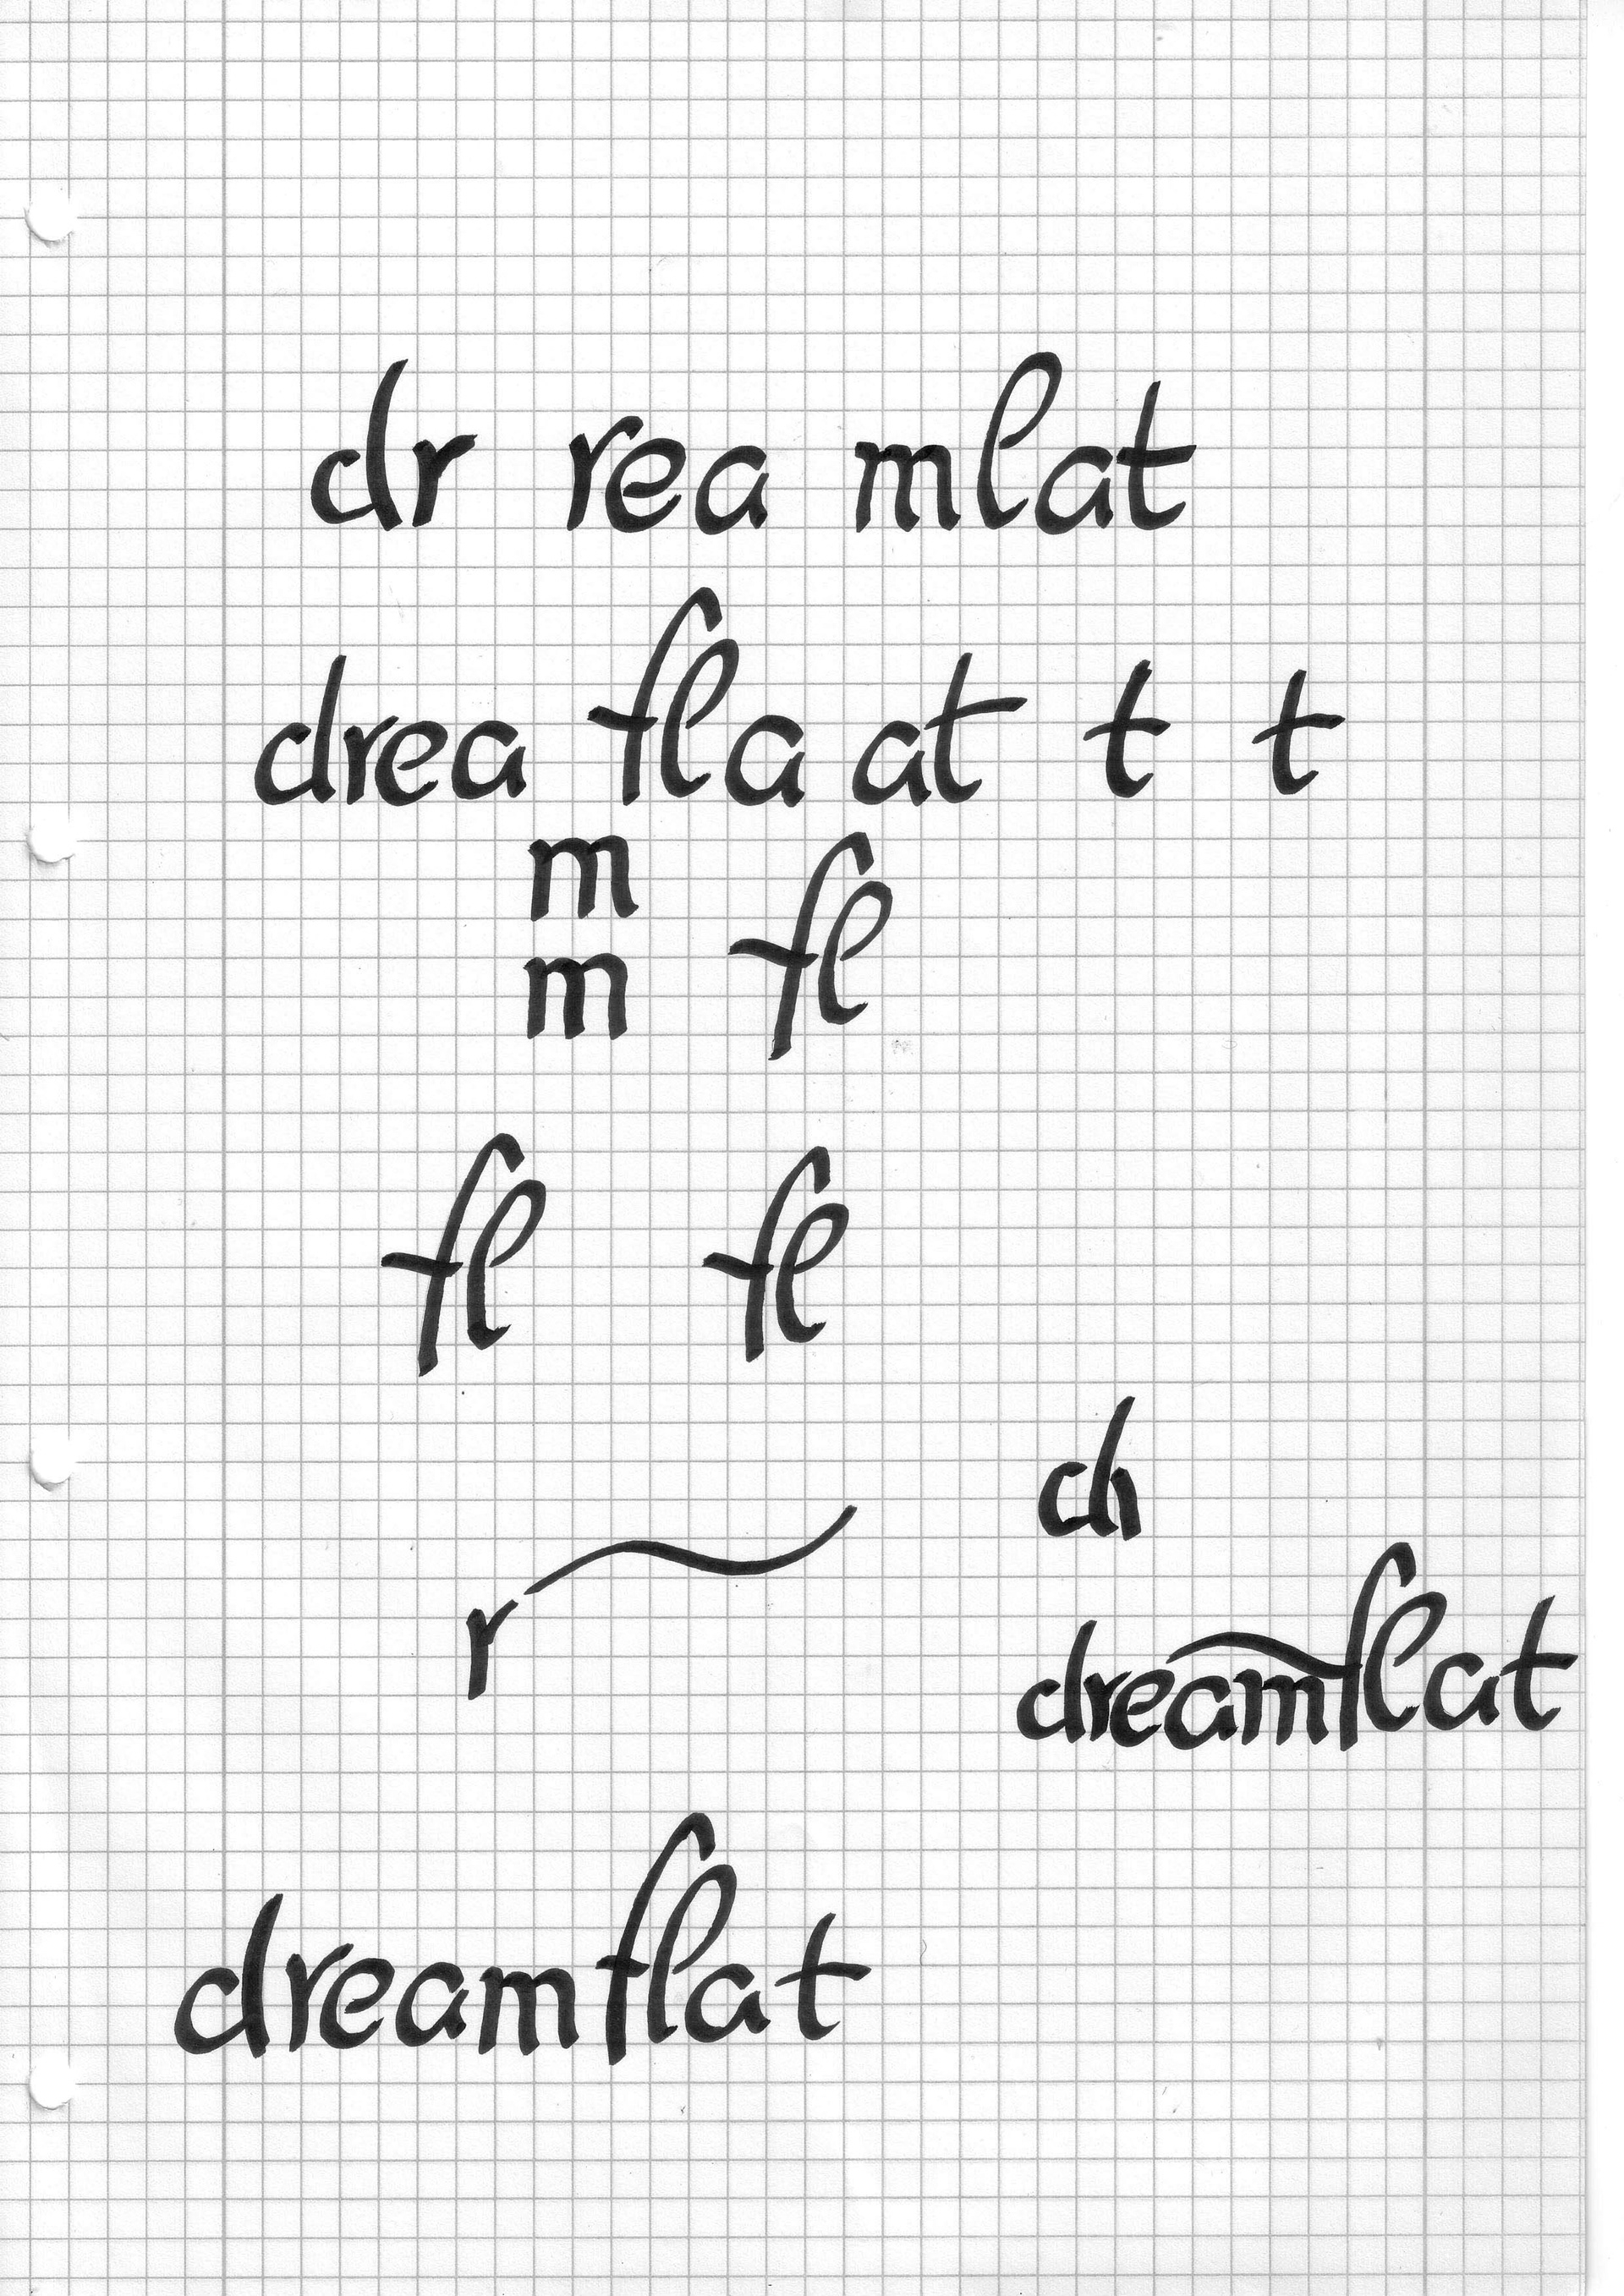 dr rea mlat
drea fla at t t
m
m fl
fl fl
ch
r
dreamflat
dreamflat